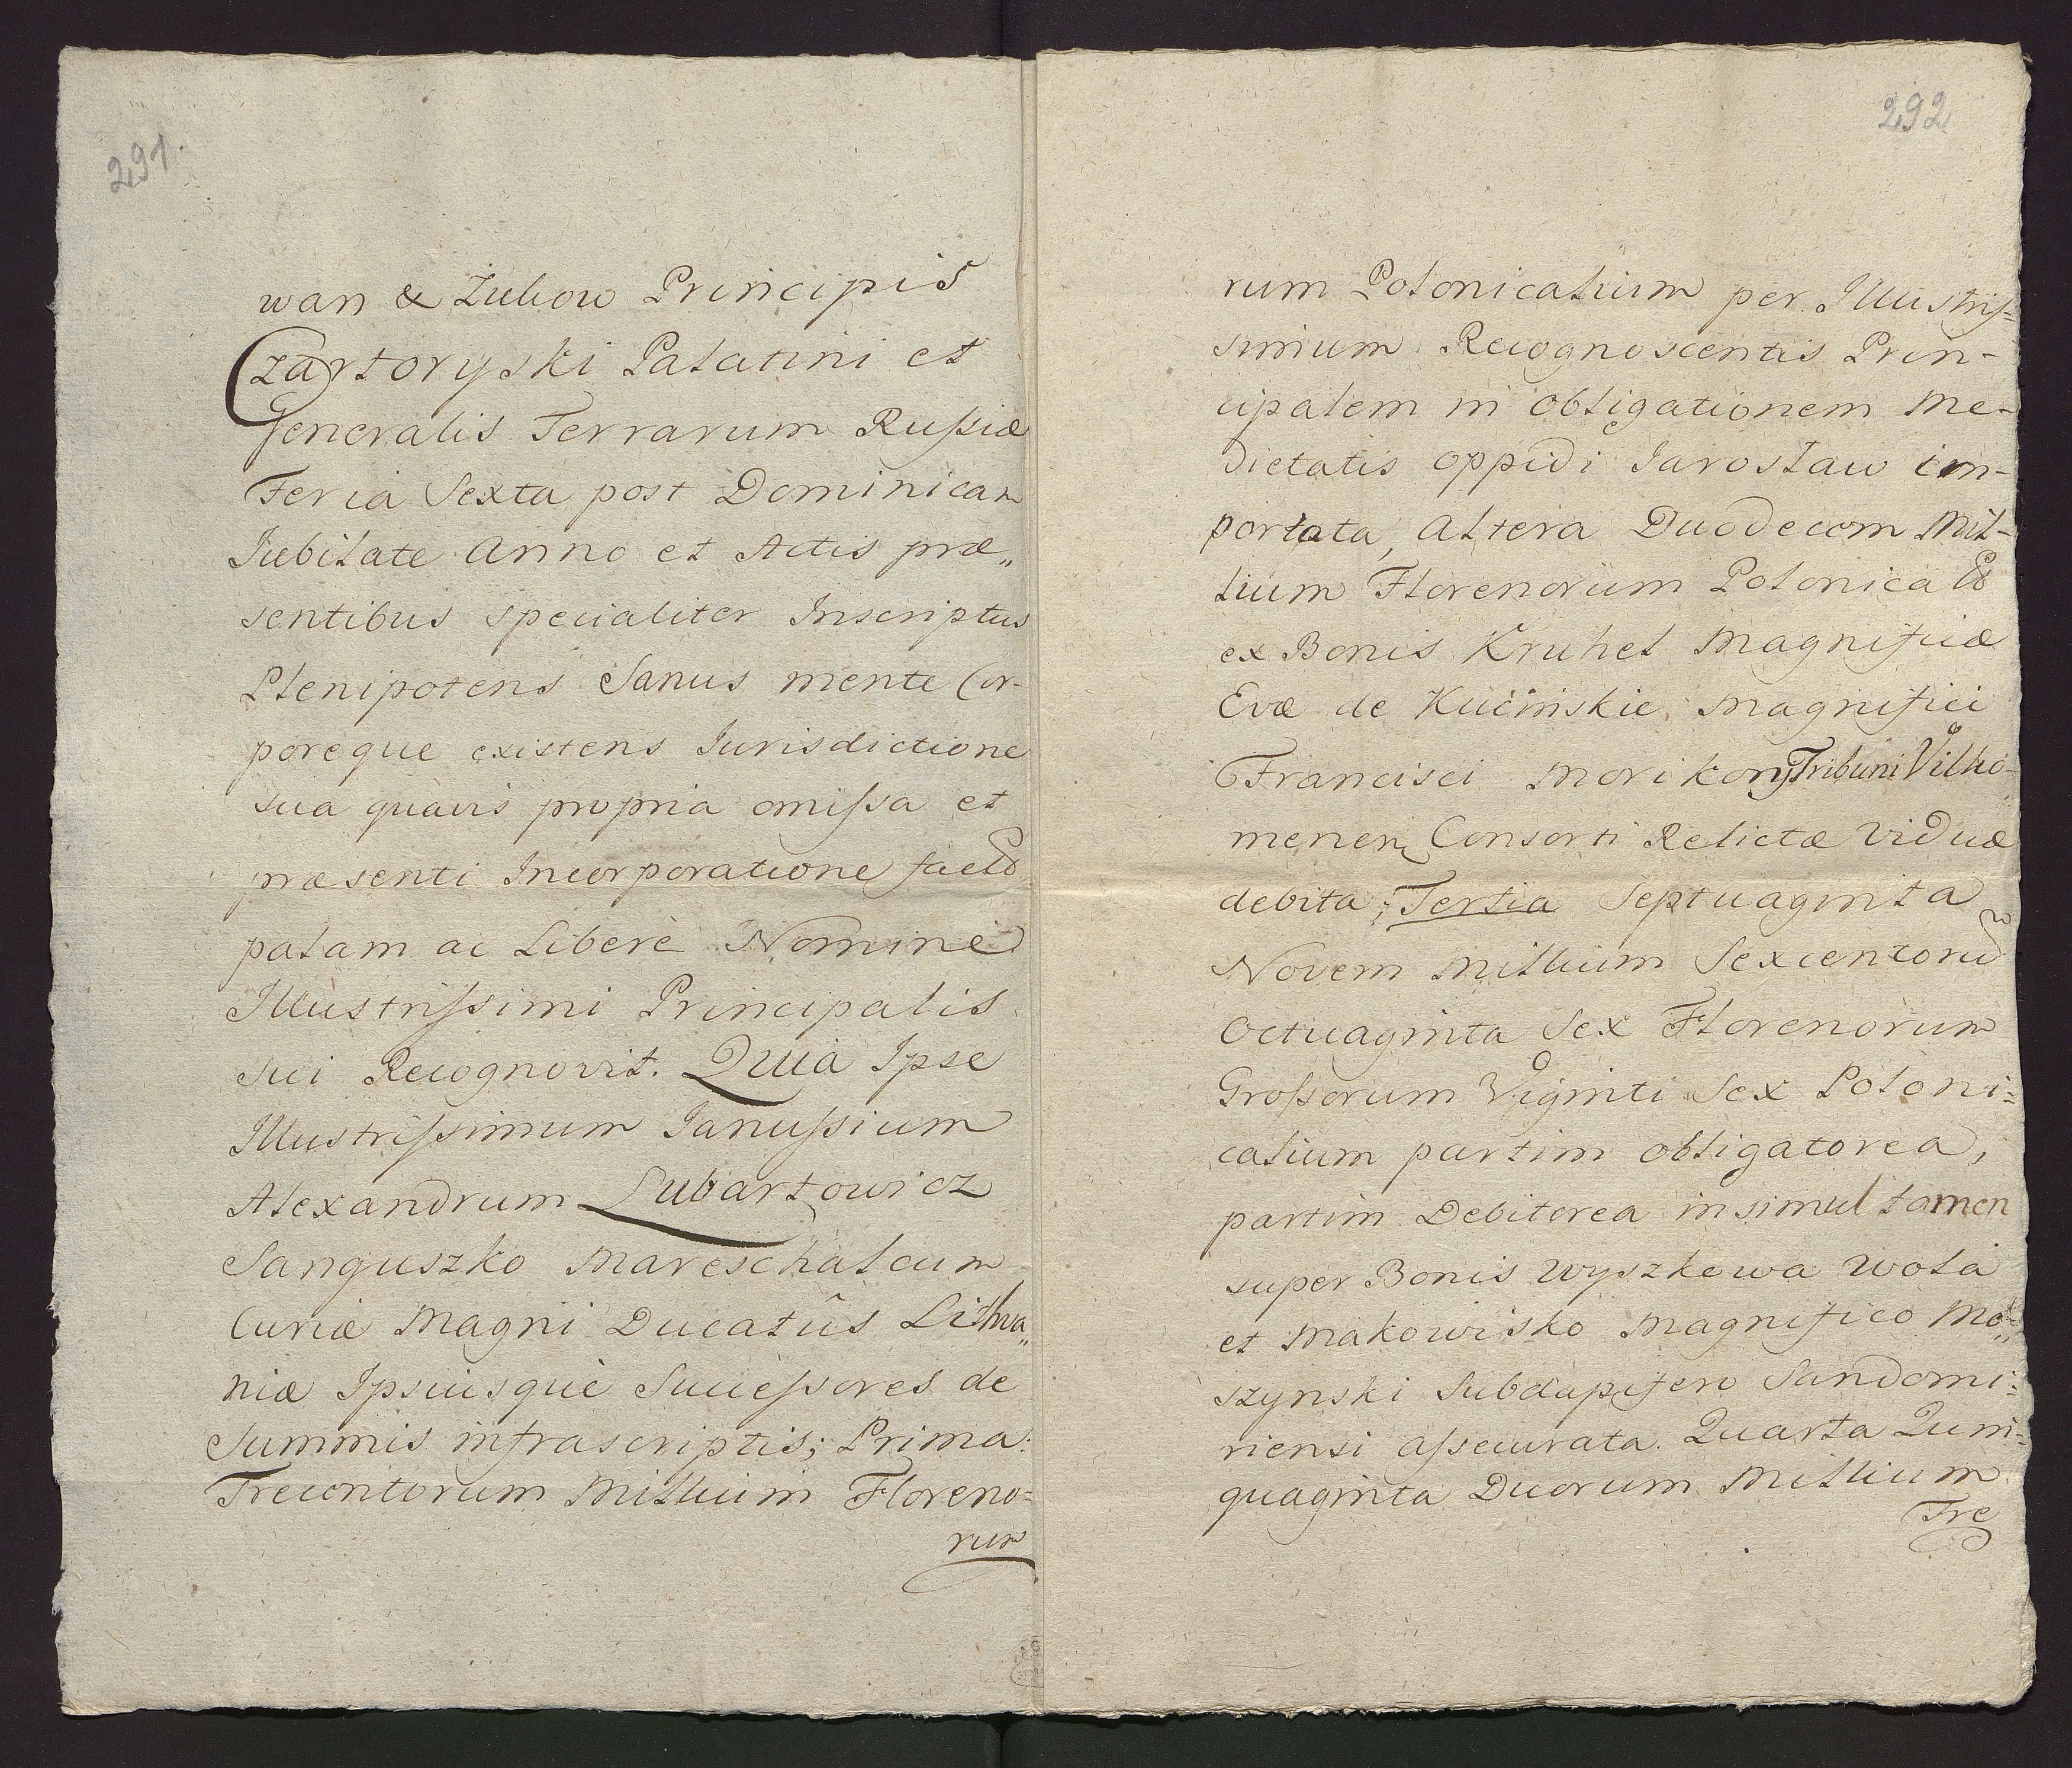 291.
wan & Zukow Principis
Czartoryski Palatini et
Generalis Terrarum Russiæ
Feria Sexta post Dominicam
Jubilate Anno et Actis præ„
sentibus specialiter Inscriptus
Plenipotens Sanus mente Cor-
poreque existens Jurisdictione
sua quavis propria omissa et
præsenti Incorporatione facto
palam ac Liberè Nomine
Illustrissimi Principalis
sui Recognovit. Quia Ipse
Illustrissimum Janussium
Alexandrum Lubartowicz
Sanguszko Mareschalcum
Curiæ Magni Ducatûs Lithua„
niæ Ipsiusquè Successores de
Summis infrascriptis; Prima
Trecentorum Millium Floreno=
rum
292
rum Polonicalium per Illustris=
simum Recognoscentis Prin-
cipalem in obligationem Me-
dietatis oppidi Jarosław im-
portata, Altera Duodecem Mil-
lium Florenorum Polonical
ex Bonis Kruhel Magnificæ
Evæ de Kucinskie, Magnifici
Francisci Morikony Tribuni Vilko-
meneri Consorti Relictæ Viduæ
debita; Tertia Septuaginta
Novem Millium Sexcentorum
Octuaginta Sex Florenorum
Grossorum Viginti Sex Poloni=
calium partim obligatorea,
partim Debitorea insimul tamen
super Bonis Wyszkowa Wola
et Makowisko Magnifico Mo„
szynski Subdapifero Sandomi=
riensi assecurata. Quarta Quin=
quaginta Duorum Millium
Tre